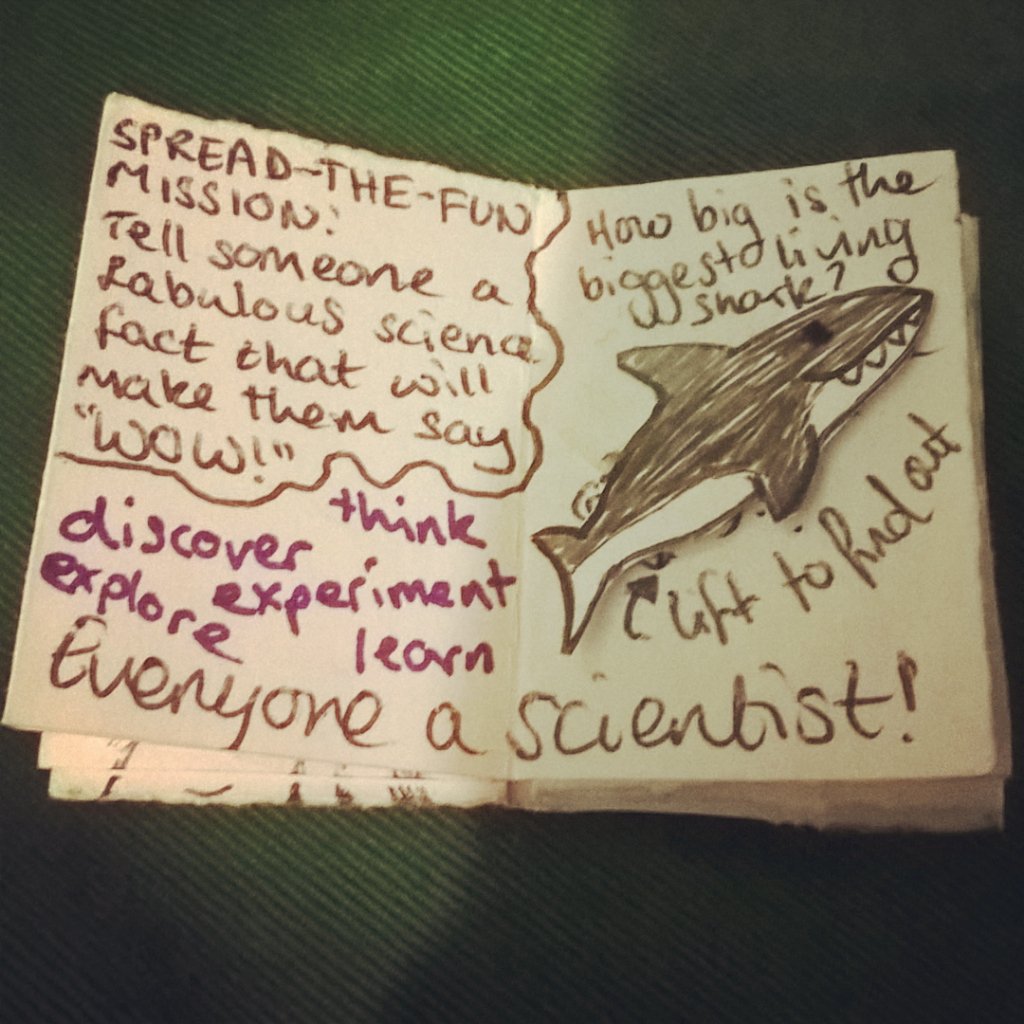 SPREAD-THE-FUN
MISSION:
Tell someone a
fabulous science
fact that will
make them say
"WOW!"
think
discover
experiment
explore
learn
How big is the
biggest living
shark?
lift to find out
Everyone a scientist!